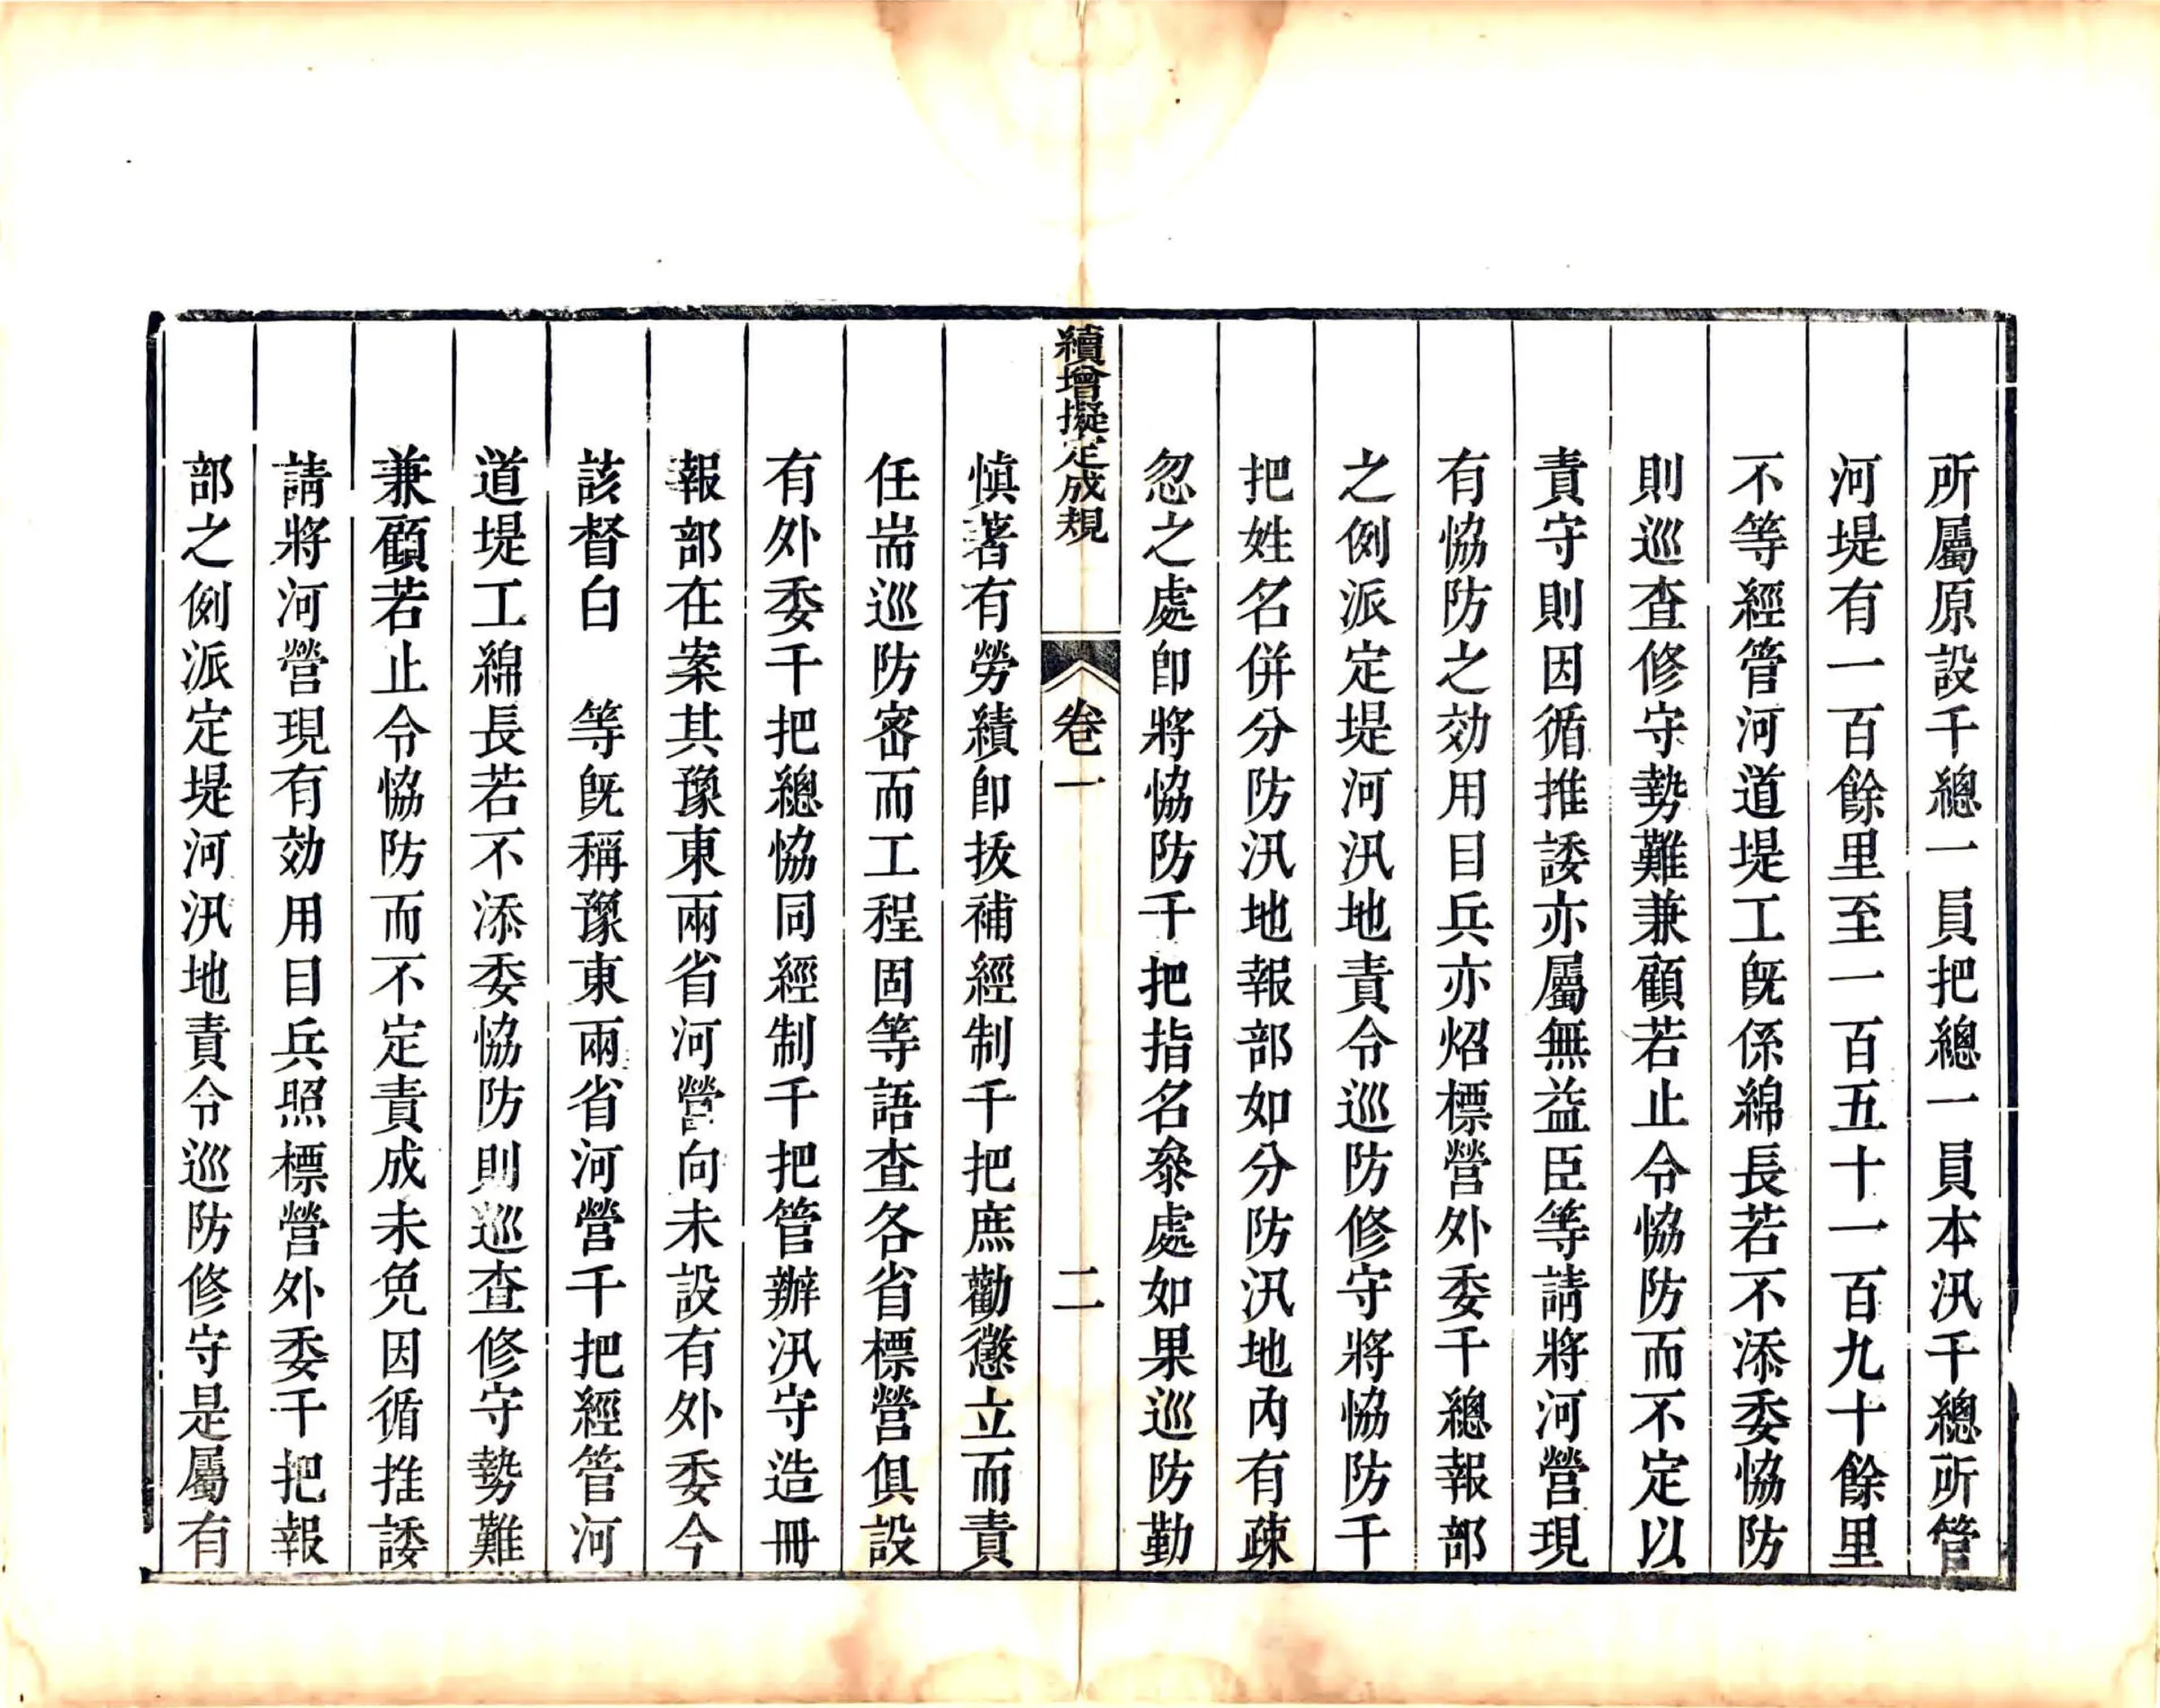 所屬原設千總一員把總一員本汛千總所管
河堤有一百餘里至一百五十一百九十餘里
不等經管河道堤工旣係綿長若不添委恊防
則巡查修守勢難兼顧若止令恊防而不定以
責守則因循推諉亦屬無益臣等請將河營現
有恊防之効用目兵亦炤標營外委千總報部
之例派定堤河汛地責令巡防修守將恊防千
把姓名併分防汛地報部如分防汛地內有疎
忽之處卽將恊防千把指名叅處如果巡防勤
續增擬定成規 卷一 二
愼著有勞績卽拔補經制千把庶勸懲立而責
任耑巡防密而工程固等語查各省標營俱設
有外委千把總恊同經制千把管辦汛守造冊
報部在案其豫東兩省河營向未設有外委今
該督白 等旣稱豫東兩省河營千把經管河
道堤工綿長若不添委恊防則巡查修守勢難
兼顧若止令恊防而不定責成未免因循推諉
請將河營現有効用目兵照標營外委千把報
部之例派定堤河汛地責令巡防修守是屬有